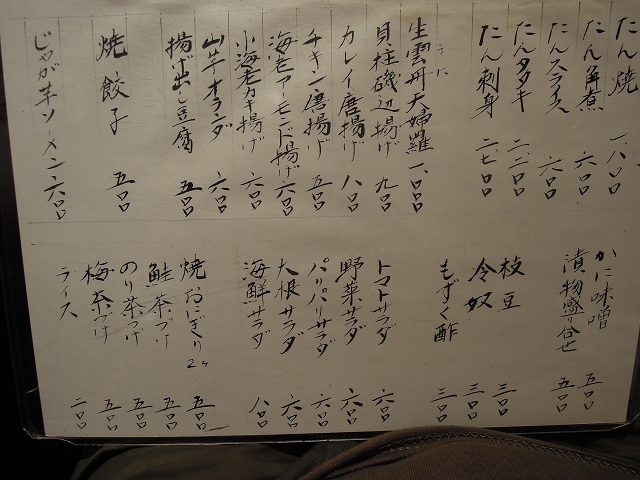 たん焼 一、八〇〇
たん角煮 六〇〇
たんスライス 六〇〇
たんタタキ 二、二〇〇
たん刺身 二七〇〇
生雲丹天婦羅 一、〇〇〇
うに
貝柱磯辺揚げ 九〇〇
カレイ唐揚げ 八〇〇
チキン唐揚げ 五〇〇
海老アーモンド揚げ 六〇〇
小海老カキ揚げ 六〇〇
山芋オランダ 六〇〇
揚げ出し豆腐 五〇〇
焼餃子 五〇〇
じゃが芋ソーメン 六〇〇
かに味噌 五〇〇
漬物盛り合せ 五〇〇
枝豆 三〇〇
冷奴 三〇〇
もずく酢 三〇〇
トマトサラダ 六〇〇
野菜サラダ 六〇〇
パリパリサラダ 六〇〇
大根サラダ 六〇〇
海鮮サラダ 八〇〇
焼おにぎり2ケ 五〇〇
鮭茶づけ 五〇〇
のり茶づけ 五〇〇
梅茶づけ 五〇〇
ライス 二〇〇